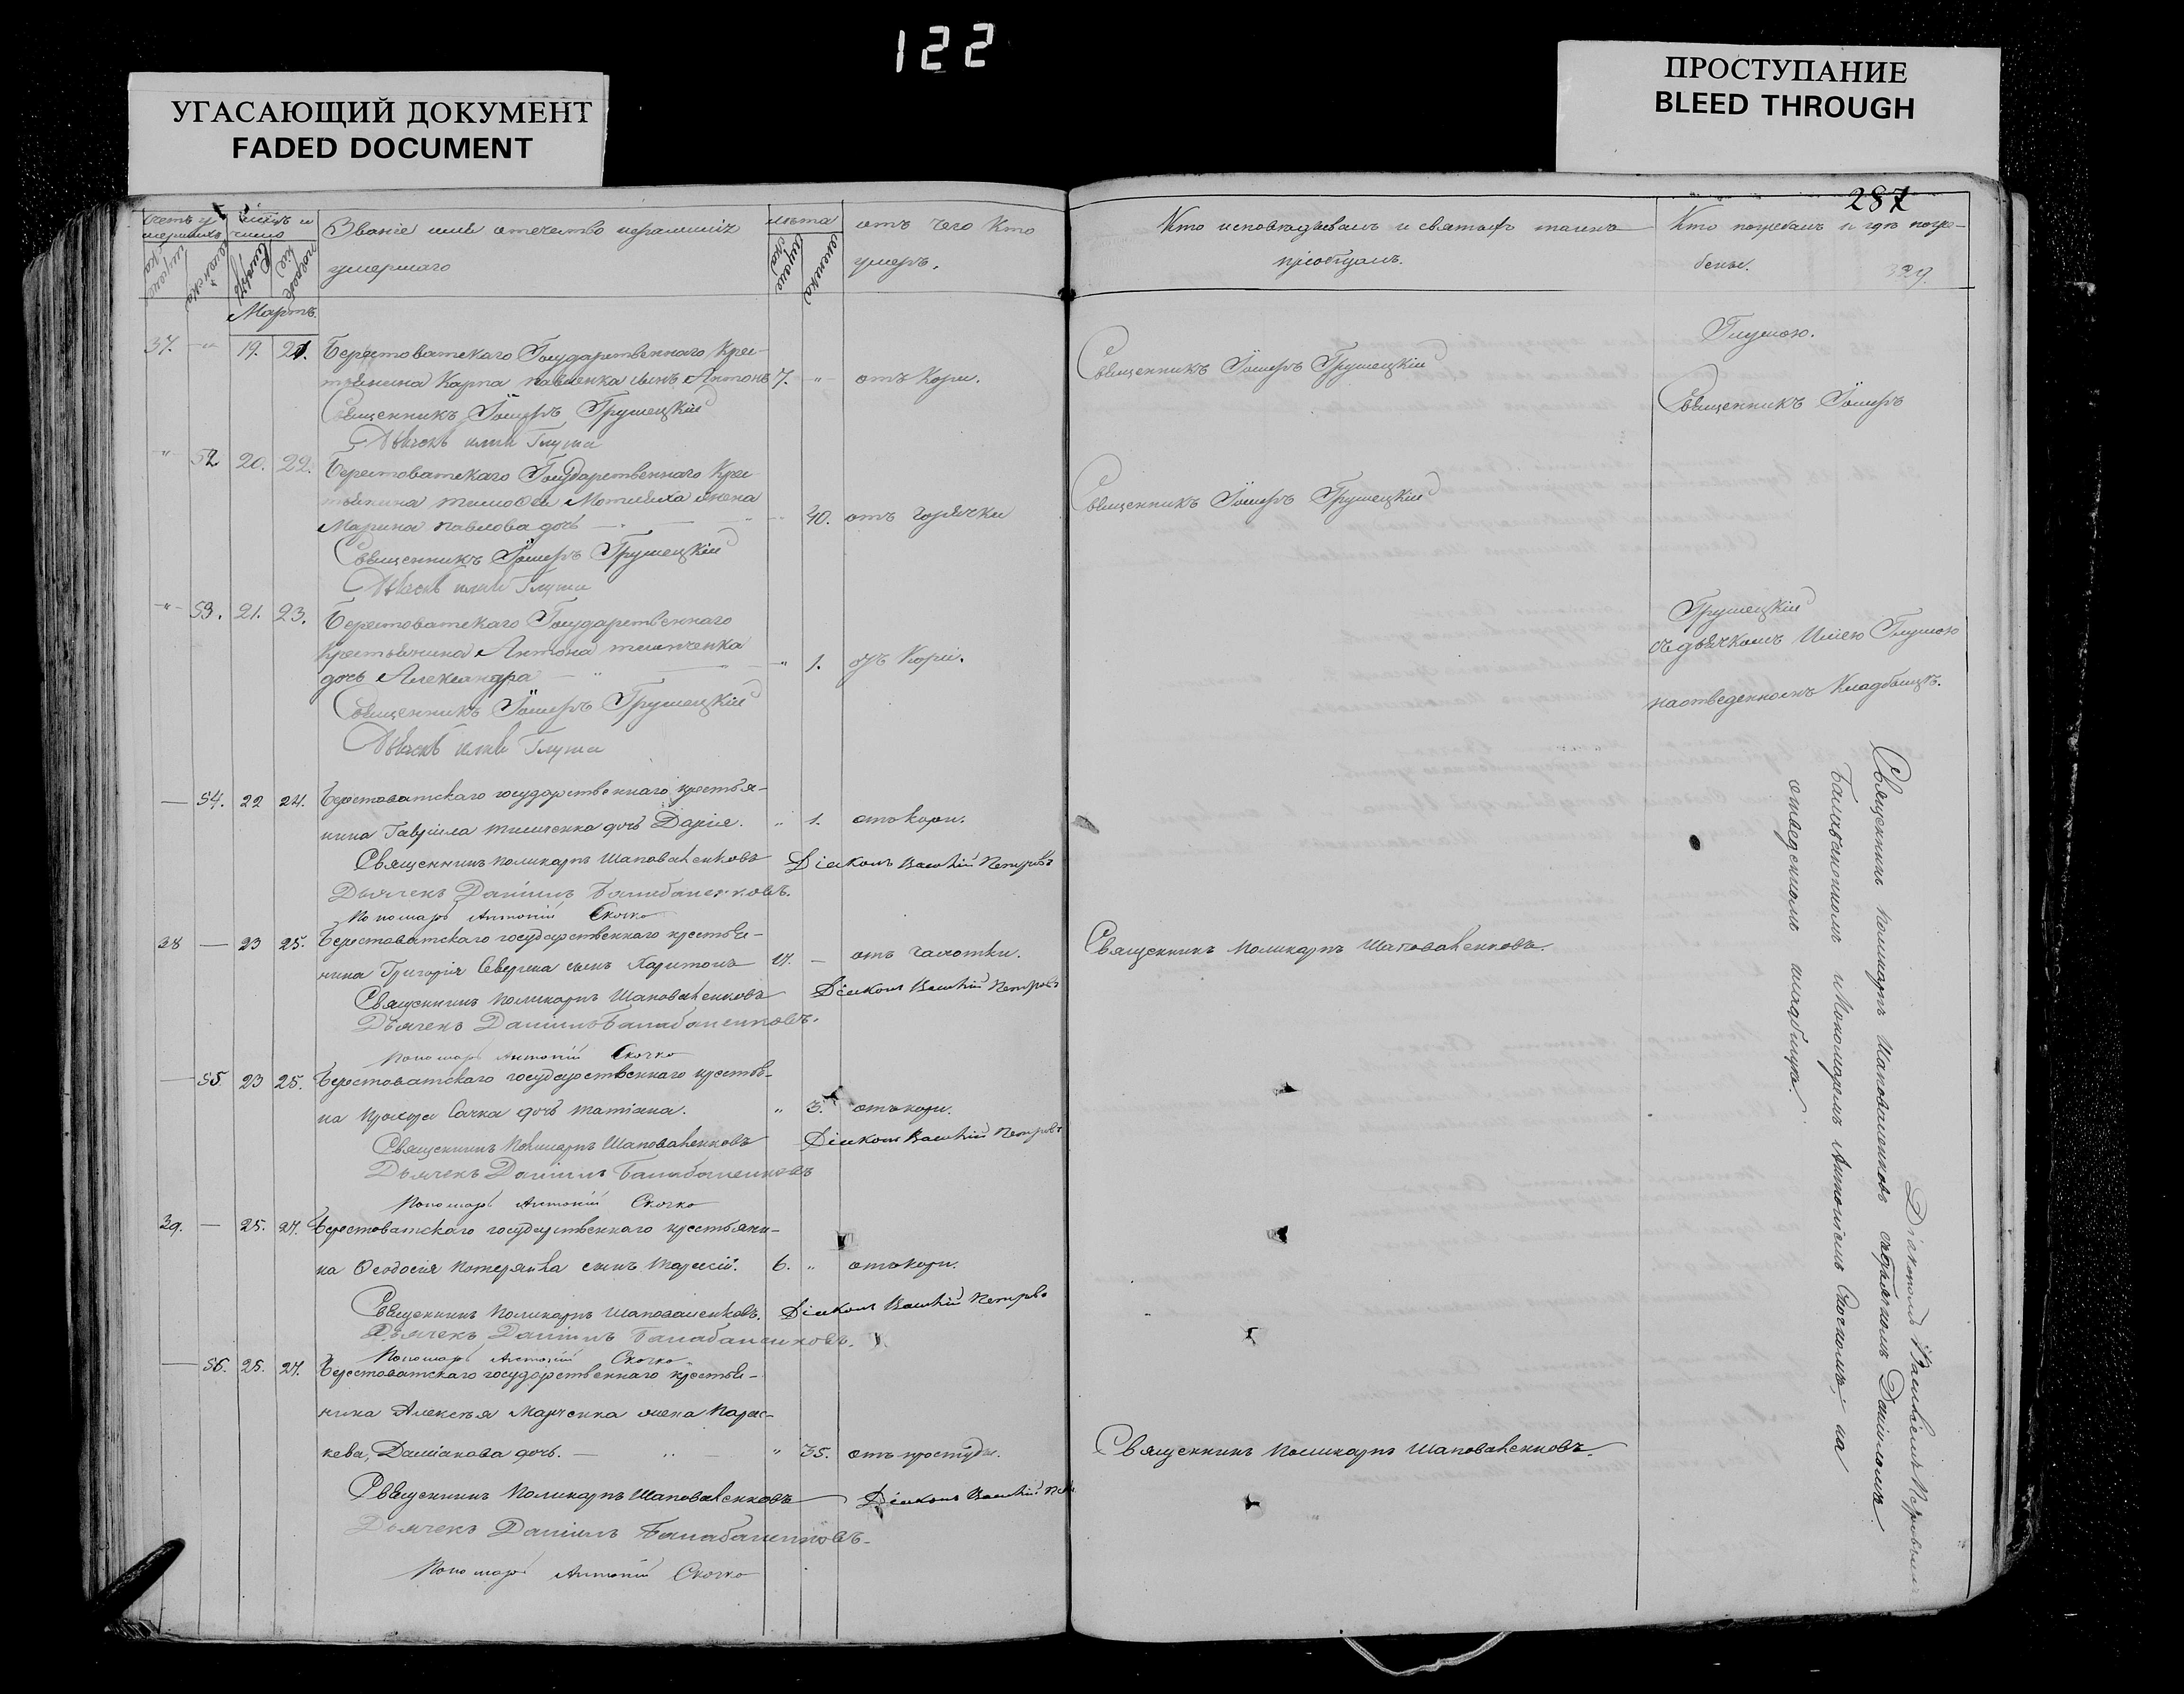 122
УГАСАЮЩИЙ ДОКУМЕНТ
FADED DOCUMENT
ПРОСТУПАНИЕ
BLEED THROUGH
287
Званіе имя отечество
умершаго
лѣта
отъ чего кто
умеръ.
Мартъ.
37. 19. 21. Берестоватскаго Государственнаго Кре-
стьянина Карпа Павленка сынъ Антонъ 7. " отъ Кори.
Священникъ Іосифъ Грушецкій
Дьячекъ Илія Глуша
" 52 20. 22. Берестоватскаго Государственнаго Кре-
стьянина Тимофея жена
Марина Павлова дочь 40. отъ горячки
Священникъ Іосифъ Грушецкій
Дьячекъ Илія Глуша
" 53. 21. 23. Берестоватскаго Государственнаго
Крестьянина Антона Тимченка
дочь Александра " 1. отъ Кори.
Священникъ Іосифъ Грушецкій
Дьячекъ Илія Глуша
— 54. 22 24. Берестоватскаго государственнаго крестья-
нина Гавріила Тимченка дочь Дарія. " 1. отъ кори.
Священникъ Поликарпъ Шаповаленковъ Діаконъ Василій Петровъ
Дьячекъ Даніилъ Балабаненковъ.
Пономарь Антоній Скочко
38 — 23 25. Берестоватскаго государственнаго крестья-
нина Григорія сынъ Харитонъ 17. — отъ чахотки.
Священникъ Поликарпъ Шаповаленковъ Діаконъ Василій Петровъ
Дьячекъ Даніилъ Балабаненковъ.
Пономарь Антоній Скочко
— 55. 23 25. Берестоватскаго государственнаго крестья-
на Прохора Сачка дочь Татіана. " 3. отъ кори.
Священникъ Поликарпъ Шаповаленковъ Діаконъ Василій Петровъ
Дьячекъ Даніилъ Балабаненковъ
Пономарь Антоній Скочко
39. — 25. 27. Берестоватскаго государственнаго крестьяни-
на Ѳеодосія сынъ 6. " отъ кори.
Священникъ Поликарпъ Шаповаленковъ. Діаконъ Василій Петровъ
Дьячекъ Даніилъ Балабаненковъ.
Пономарь Антоній Скочко
— 56. 25. 27. Берестоватскаго государственнаго крестья-
нина Алексѣя Марченка жена Парас-
кева, Даміанова дочь. — " — " 35. отъ простуды.
Священникъ Поликарпъ Шаповаленковъ Діаконъ Василій
Дьячекъ Даніилъ Балабаненковъ
Пономарь Антоній Скочко
Кто исповѣдывалъ и святыхъ таинъ
пріобщалъ.
Кто погребалъ и гдѣ погре-
бены.
Священникъ Іосифъ Грушецкій
Священникъ Іосифъ Грушецкій
Священникъ Поликарпъ Шаповаленковъ.
Священникъ Поликарпъ Шаповаленковъ.
Глушою.
Священникъ Іосифъ
Грушецкій
съ дьячкомъ Иліею Глушою
на отведенномъ Кладбищѣ.
Священникъ Поликарпъ Шаповаленковъ съ дьячкомъ Даніиломъ
Балабаненкомъ и пономаремъ Антоніемъ Скочкомъ, на
отведенномъ кладбищѣ.
Діакономъ Василіемъ Петровымъ